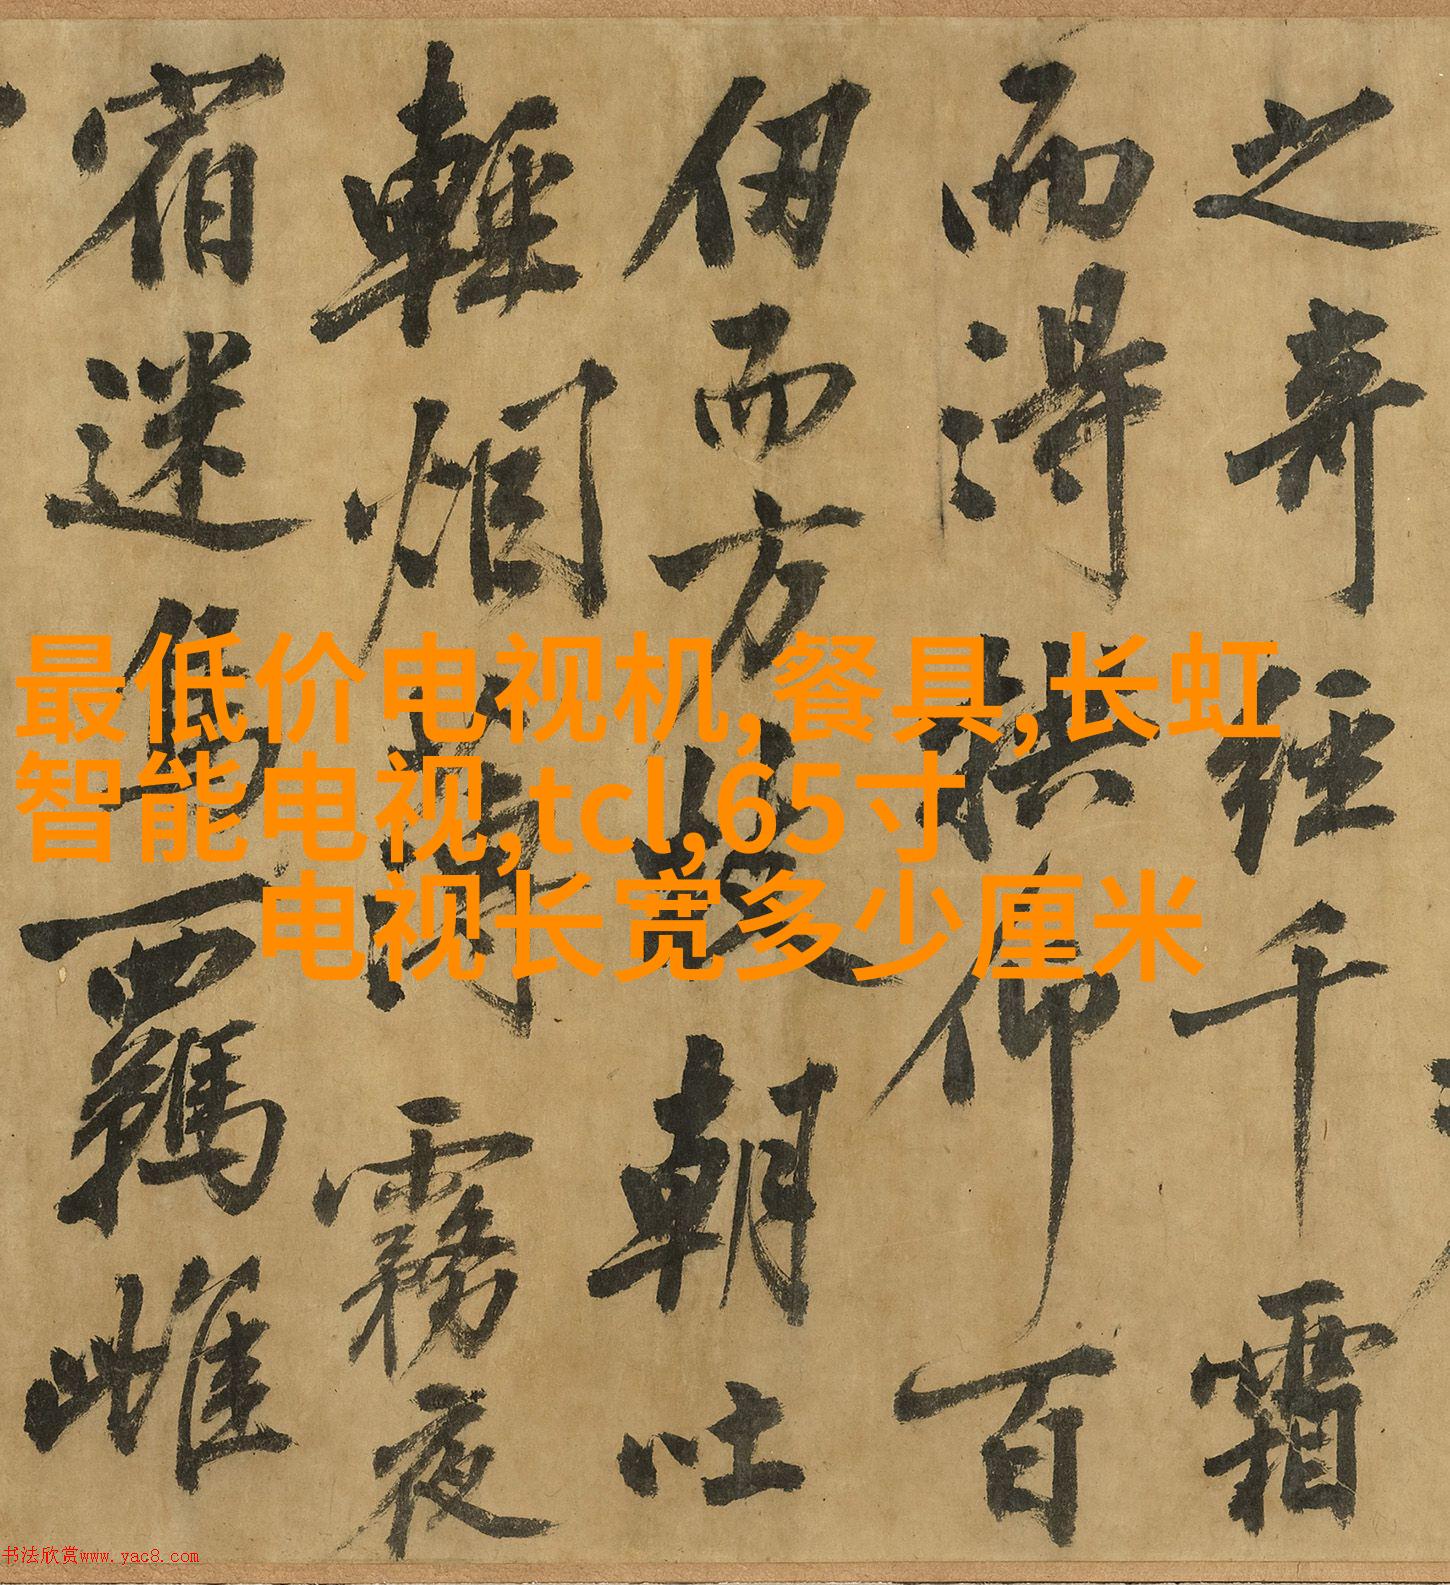 之奇經千霜
而得拱仰百
仞而方枝朝吐
輕烟薄霧夜
宿迷鳥羈雌
最低价电视机,餐具,长虹
智能电视,tcl,65寸
电视长宽多少厘米
书法欣赏www.yac8.com